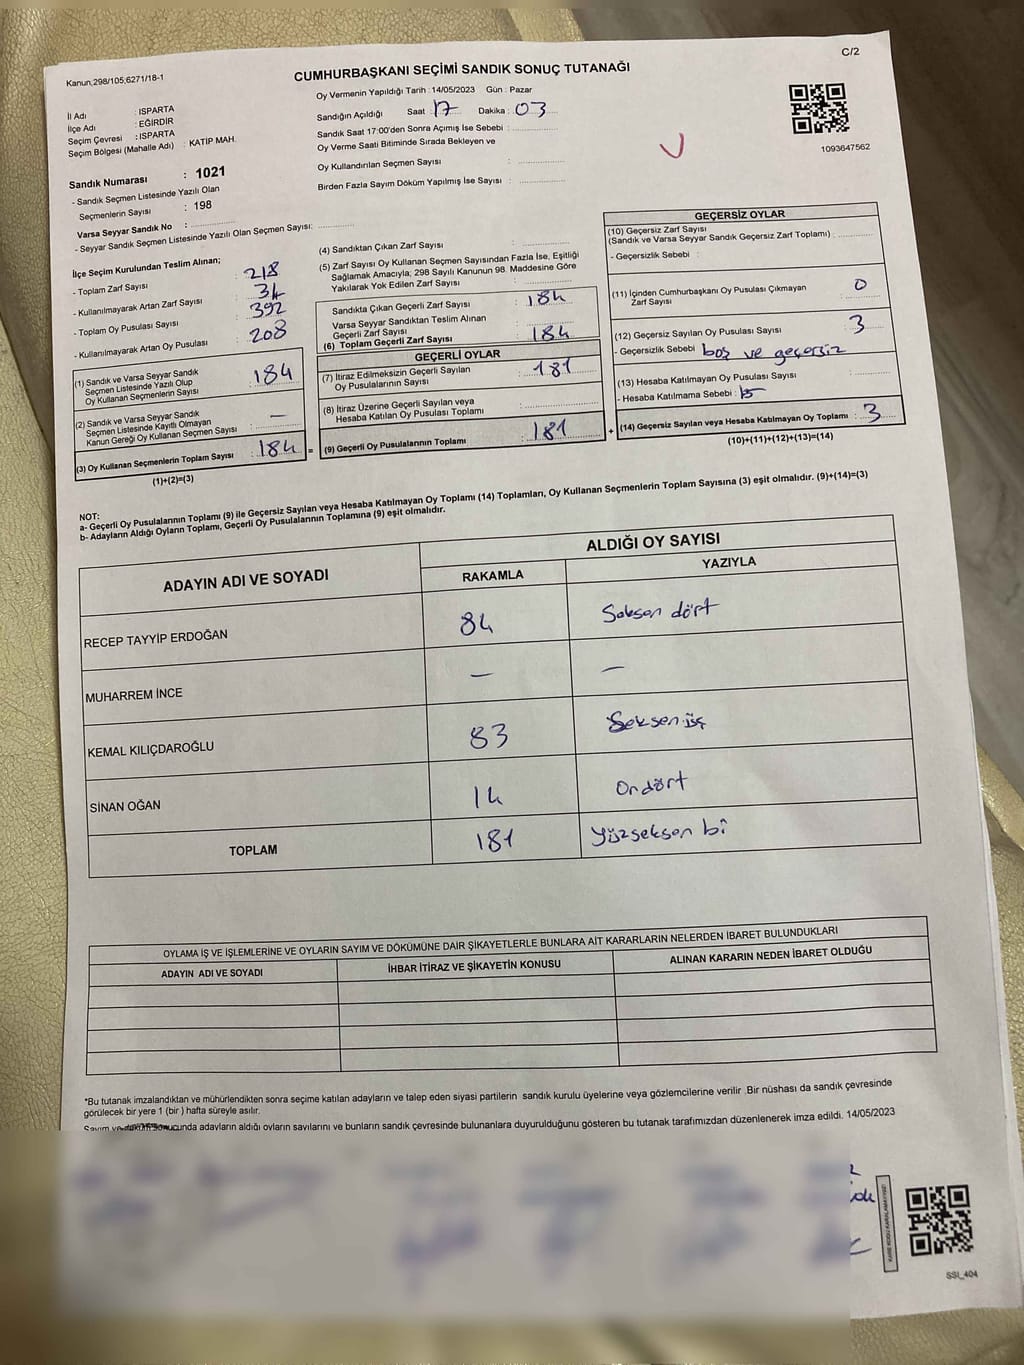 C/2
Kanun,298/105;6271/18-1
CUMHURBAŞKANI SEÇİMİ SANDIK SONUÇ TUTANAĞI
Oy Vermenin Yapıldığı Tarih : 14/05/2023 Gün : Pazar
İl Adı : ISPARTA
İlçe Adı : EĞİRDİR
Seçim Çevresi : ISPARTA
Seçim Bölgesi (Mahalle Adı) : KATİP MAH.
Sandığın Açıldığı Saat : 17 Dakika : 03
Sandık Saat 17:00'den Sonra Açımış İse Sebebi :
Oy Verme Saati Bitiminde Sırada Bekleyen ve
Oy Kullandırılan Seçmen Sayısı :
Birden Fazla Sayım Döküm Yapılmış İse Sayısı :
1093647562
Sandık Numarası : 1021
- Sandık Seçmen Listesinde Yazılı Olan
Seçmenlerin Sayısı : 198
Varsa Seyyar Sandık No :
- Seyyar Sandık Seçmen Listesinde Yazılı Olan Seçmen Sayısı:
İlçe Seçim Kurulundan Teslim Alınan;
- Toplam Zarf Sayısı : 218
- Kullanılmayarak Artan Zarf Sayısı : 34
- Toplam Oy Pusulası Sayısı : 392
- Kullanılmayarak Artan Oy Pusulası : 208
(1) Sandık ve Varsa Seyyar Sandık
Seçmen Listesinde Yazılı Olup
Oy Kullanan Seçmenlerin Sayısı : 184
(2) Sandık ve Varsa Seyyar Sandık
Seçmen Listesinde Kayıtlı Olmayan
Kanun Gereği Oy Kullanan Seçmen Sayısı : —
(3) Oy Kullanan Seçmenlerin Toplam Sayısı : 184 =
(1)+(2)=(3)
(4) Sandıktan Çıkan Zarf Sayısı :
(5) Zarf Sayısı Oy Kullanan Seçmen Sayısından Fazla İse, Eşitliği
Sağlamak Amacıyla; 298 Sayılı Kanunun 98. Maddesine Göre
Yakılarak Yok Edilen Zarf Sayısı :
Sandıkta Çıkan Geçerli Zarf Sayısı : 184
Varsa Seyyar Sandıktan Teslim Alınan
Geçerli Zarf Sayısı :
(6) Toplam Geçerli Zarf Sayısı : 184
GEÇERLİ OYLAR
(7) İtiraz Edilmeksizin Geçerli Sayılan
Oy Pusulalarının Sayısı : 181
(8) İtiraz Üzerine Geçerli Sayılan veya
Hesaba Katılan Oy Pusulası Toplamı :
(9) Geçerli Oy Pusulalarının Toplamı : 181 +
GEÇERSİZ OYLAR
(10) Geçersiz Zarf Sayısı
(Sandık ve Varsa Seyyar Sandık Geçersiz Zarf Toplamı) :
- Geçersizlik Sebebi :
(11) İçinden Cumhurbaşkanı Oy Pusulası Çıkmayan
Zarf Sayısı : 0
(12) Geçersiz Sayılan Oy Pusulası Sayısı : 3
- Geçersizlik Sebebi boş ve geçersiz
(13) Hesaba Katılmayan Oy Pusulası Sayısı :
- Hesaba Katılmama Sebebi :
(14) Geçersiz Sayılan veya Hesaba Katılmayan Oy Toplamı : 3
(10)+(11)+(12)+(13)=(14)
NOT:
a- Geçerli Oy Pusulalarının Toplamı (9) ile Geçersiz Sayılan veya Hesaba Katılmayan Oy Toplamı (14) Toplamları, Oy Kullanan Seçmenlerin Toplam Sayısına (3) eşit olmalıdır. (9)+(14)=(3)
b- Adayların Aldığı Oyların Toplamı, Geçerli Oy Pusulalarının Toplamına (9) eşit olmalıdır.
ADAYIN ADI VE SOYADI
ALDIĞI OY SAYISI
RAKAMLA YAZIYLA
RECEP TAYYİP ERDOĞAN 84 Seksen dört
MUHARREM İNCE — —
KEMAL KILIÇDAROĞLU 83 Seksen üç
SİNAN OĞAN 14 Ondört
TOPLAM 181 Yüzseksen bi
OYLAMA İŞ VE İŞLEMLERİNE VE OYLARIN SAYIM VE DÖKÜMÜNE DAİR ŞİKAYETLERLE BUNLARA AİT KARARLARIN NELERDEN İBARET BULUNDUKLARI
ADAYIN ADI VE SOYADI İHBAR İTİRAZ VE ŞİKAYETİN KONUSU ALINAN KARARIN NEDEN İBARET OLDUĞU
*Bu tutanak imzalandıktan ve mühürlendikten sonra seçime katılan adayların ve talep eden siyasi partilerin sandık kurulu üyelerine veya gözlemcilerine verilir .Bir nüshası da sandık çevresinde
görülecek bir yere 1 (bir ) hafta süreyle asılır.
Sayım ve döküm sonucunda adayların aldığı oyların sayılarını ve bunların sandık çevresinde bulunanlara duyurulduğunu gösteren bu tutanak tarafımızdan düzenlenerek imza edildi. 14/05/2023
SSI_404